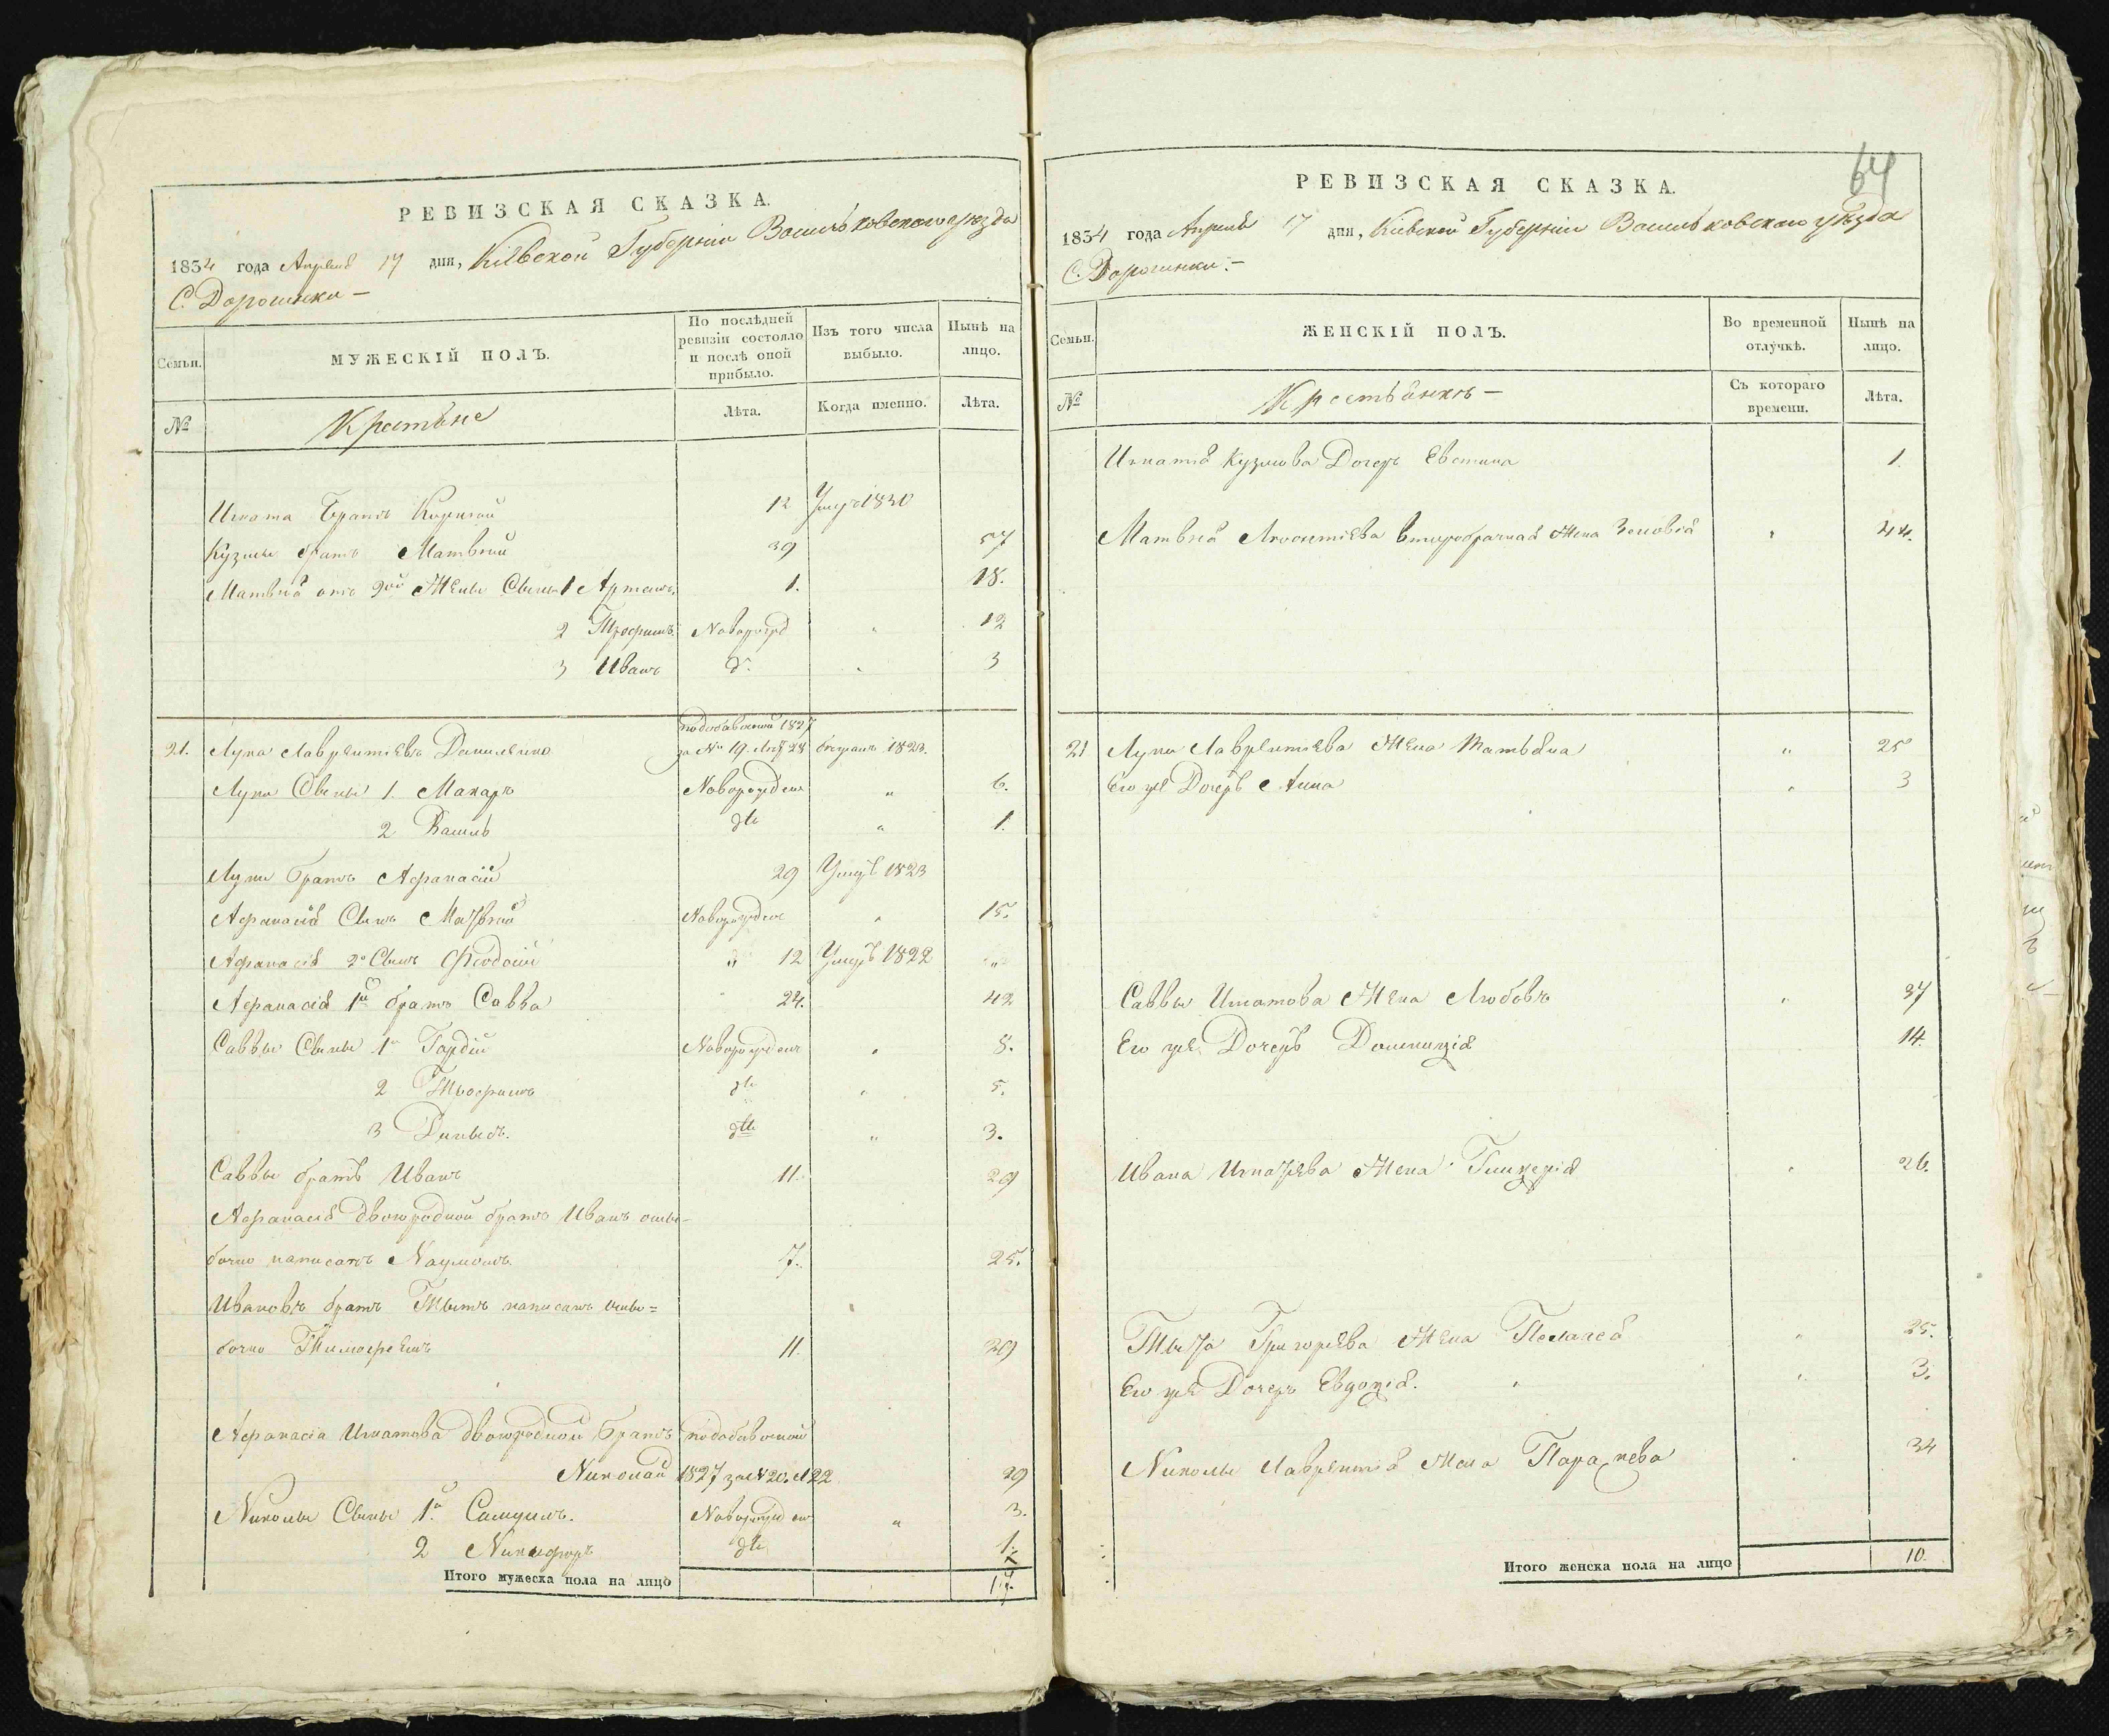 РЕВИЗСКАЯ СКАЗКА.
1834 года Апреля 17 дня, Кіевской Губерніи Васильковского уезда
С. Дорогинки —
Семьи. МУЖЕСКІЙ ПОЛЪ. По послѣдней ревизіи состояло и послѣ оной прибыло. Изъ того числа выбыло. Нынѣ на лицо.
№ Крестьяне Лѣта. Когда именно. Лѣта.
Игната Братъ Корнгий 12 1830
Кузмы братъ Матвѣй 39 57
Матвѣя отъ 2ой Жены Сыны 1 Артемъ 1. 18.
2 Трофимъ Новорожд 12
3 Иванъ д. 3
21. Лука Лаврентіевъ 1827 за № 19. 28 1823.
Луки Сыны 1. Макаръ Новорожден " 6.
2 Василь дто " 1.
Луки братъ Афанасій 29 Умеръ 1823
Афанасія Сынъ Матвѣй Новорожден " 15.
Афанасія 2й Сынъ Феодосій " 12 Умеръ 1822 "
Афанасія 1й братъ Савва 24. 42
Саввы Сыны 1й Гордій Новорожден " 8.
2 Трофимъ дто " 5.
3 Денисъ. дто " 3.
Саввы братъ Иванъ 11. 29
Афанасія двоюродной братъ Иванъ оши-
бочно написанъ Наумомъ. 7. 25.
Ивановъ братъ Титъ написанъ оши=
бочно Тимофеемъ 11. 29
Афанасія Игнатова двоюродной братъ подобавочной
Николай 1827 за № 20. 22 39
Николы Сыны 1й Самуилъ. Новорожден " 3.
2 Никифоръ дто 1.
Итого мужеска пола на лицо 17.
64
РЕВИЗСКАЯ СКАЗКА.
1834 года Апреля 17 дня, Кіевской Губерніи Васильковского уезда
С. Дорогинки. —
Семьи. ЖЕНСКІЙ ПОЛЪ. Во временной отлучкѣ. Нынѣ на лицо.
№ Крестьянкъ — Съ котораго времени. Лѣта.
Игнатія Кузмова Дочерь 1.
Матвѣя второбрачная Жена Зеновія " 44.
21 Луки Лаврентіева Жена Татьяна " 25
Его же Дочерь Анна " 3
Саввы Игнатова Жена Любовъ " 37
Его же Дочерь Доминикія 14.
Ивана Игнатіева Жена Гликерія " 26.
Тита Григоріева Жена Пелагея " 25.
Его же Дочерь Евдокія. " 3.
Николы Лаврентія Жена Параскева " 34
Итого женска пола на лицо 10.